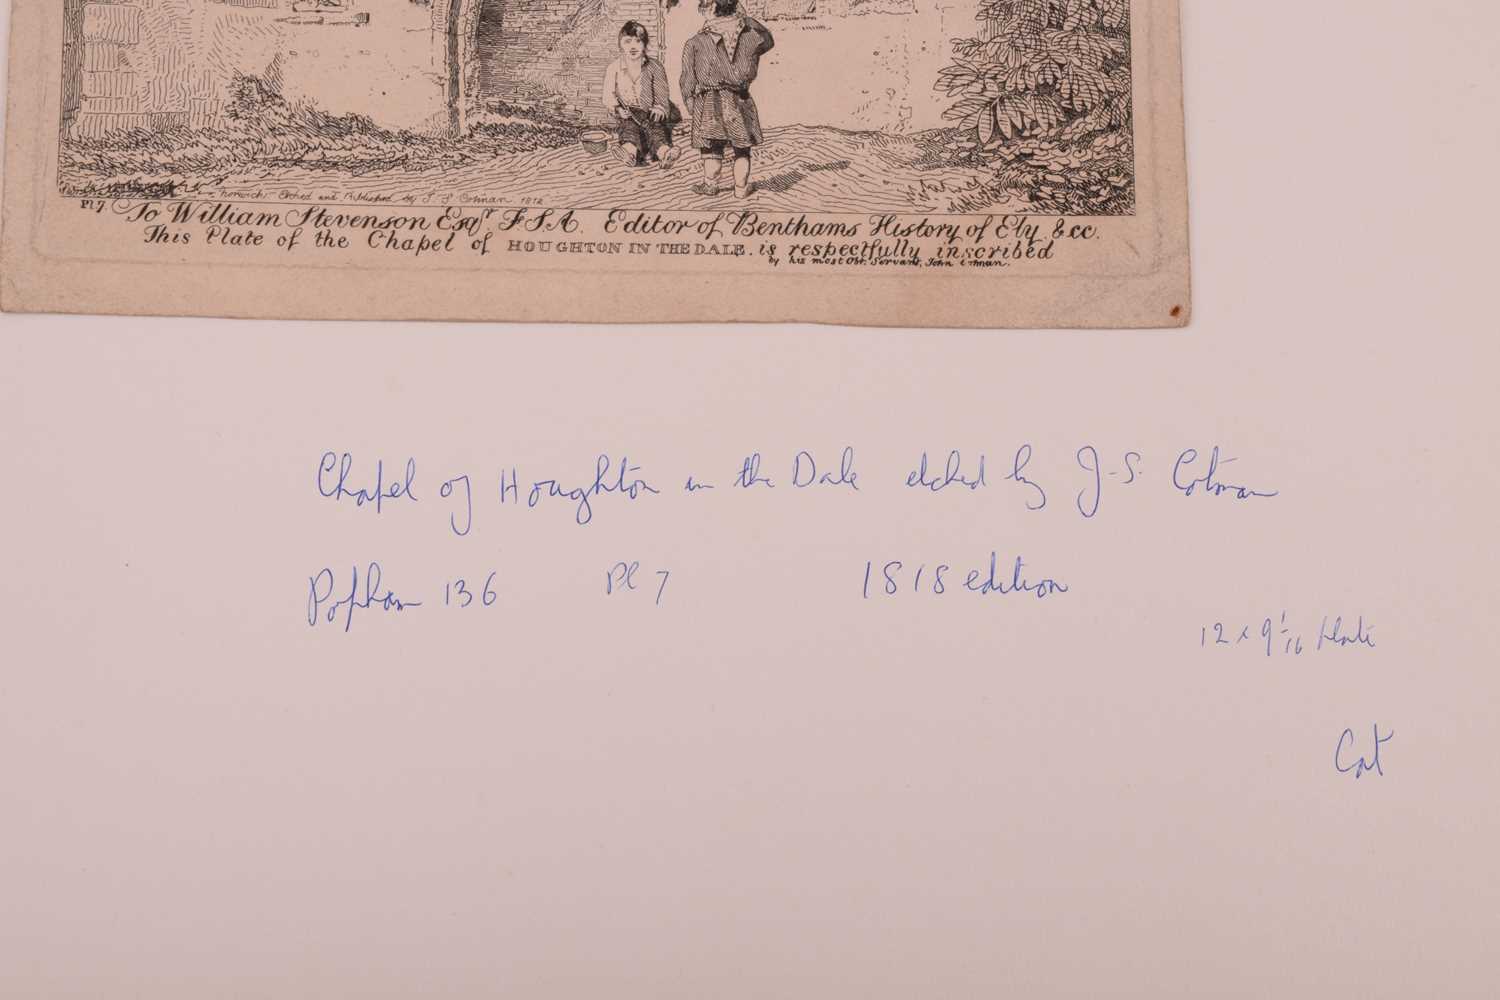 Norwich. Etched and Published by J. S. Cotman 1812
Pl 7. To William Stevenson Esqr. F.S.A. Editor of Benthams History of Ely. &cc.
This Plate of the Chapel of HOUGHTON IN THE DALE. is respectfully inscribed
by his most Obt. Servant, John Cotman.
Chapel of Houghton in the Dale etched by J-S. Cotman
Popham 136 Pl 7 1818 edition
12 x 9 1/16 plate
Cat